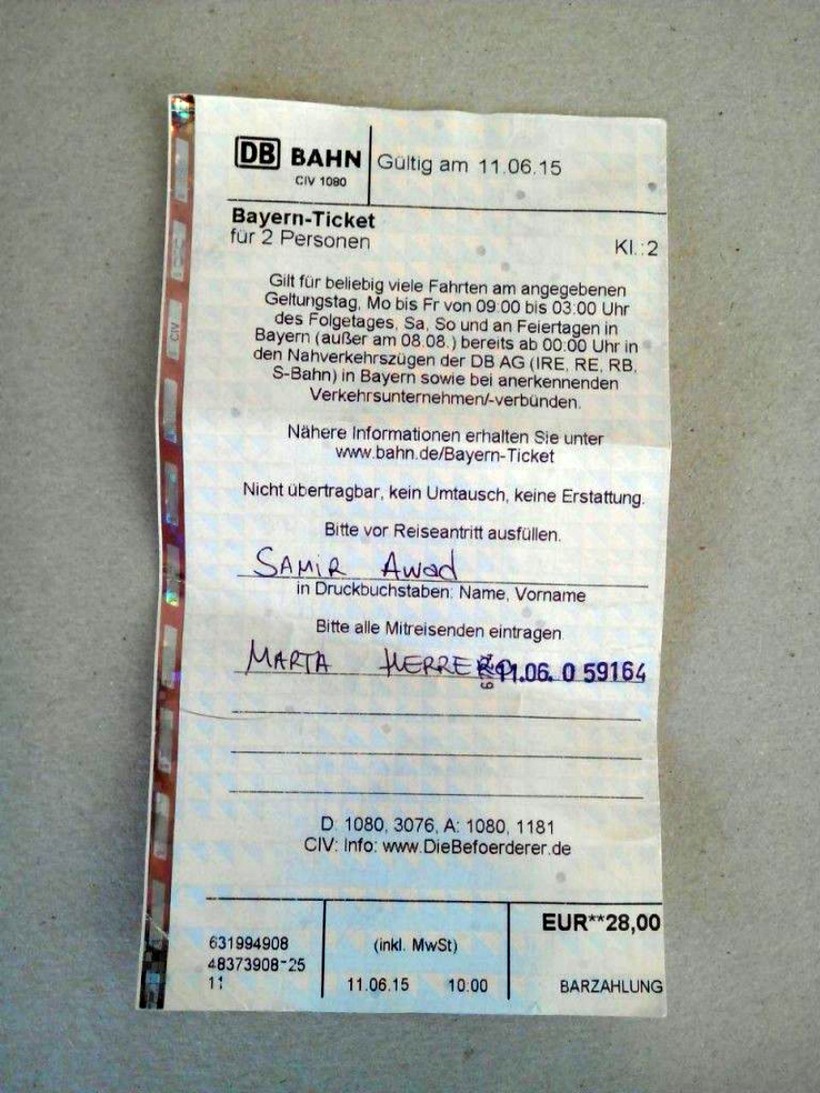 DB BAHN
CIV 1080
Gültig am 11.06.15
Bayern-Ticket
für 2 Personen
Kl.:2
Gilt für beliebig viele Fahrten am angegebenen
Geltungstag, Mo bis Fr von 09:00 bis 03:00 Uhr
des Folgetages, Sa, So und an Feiertagen in
Bayern (außer am 08.08.) bereits ab 00:00 Uhr in
den Nahverkehrszügen der DB AG (IRE, RE, RB,
S-Bahn) in Bayern sowie bei anerkennenden
Verkehrsunternehmen/-verbünden.
Nähere Informationen erhalten Sie unter
www.bahn.de/Bayern-Ticket
Nicht übertragbar, kein Umtausch, keine Erstattung.
Bitte vor Reiseantritt ausfüllen.
SAMIR Awad
in Druckbuchstaben: Name, Vorname
Bitte alle Mitreisenden eintragen
MARTA 11.06. 0 59164
D: 1080, 3076, A: 1080, 1181
CIV: Info: www.DieBefoerderer.de
EUR**28,00
631994908
48373908-25
11
(inkl. MwSt)
11.06.15 10:00
BARZAHLUNG
CIV